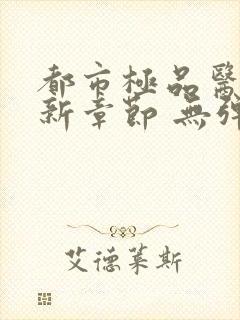 都市極品醫
新章節 無彈
艾德萊斯